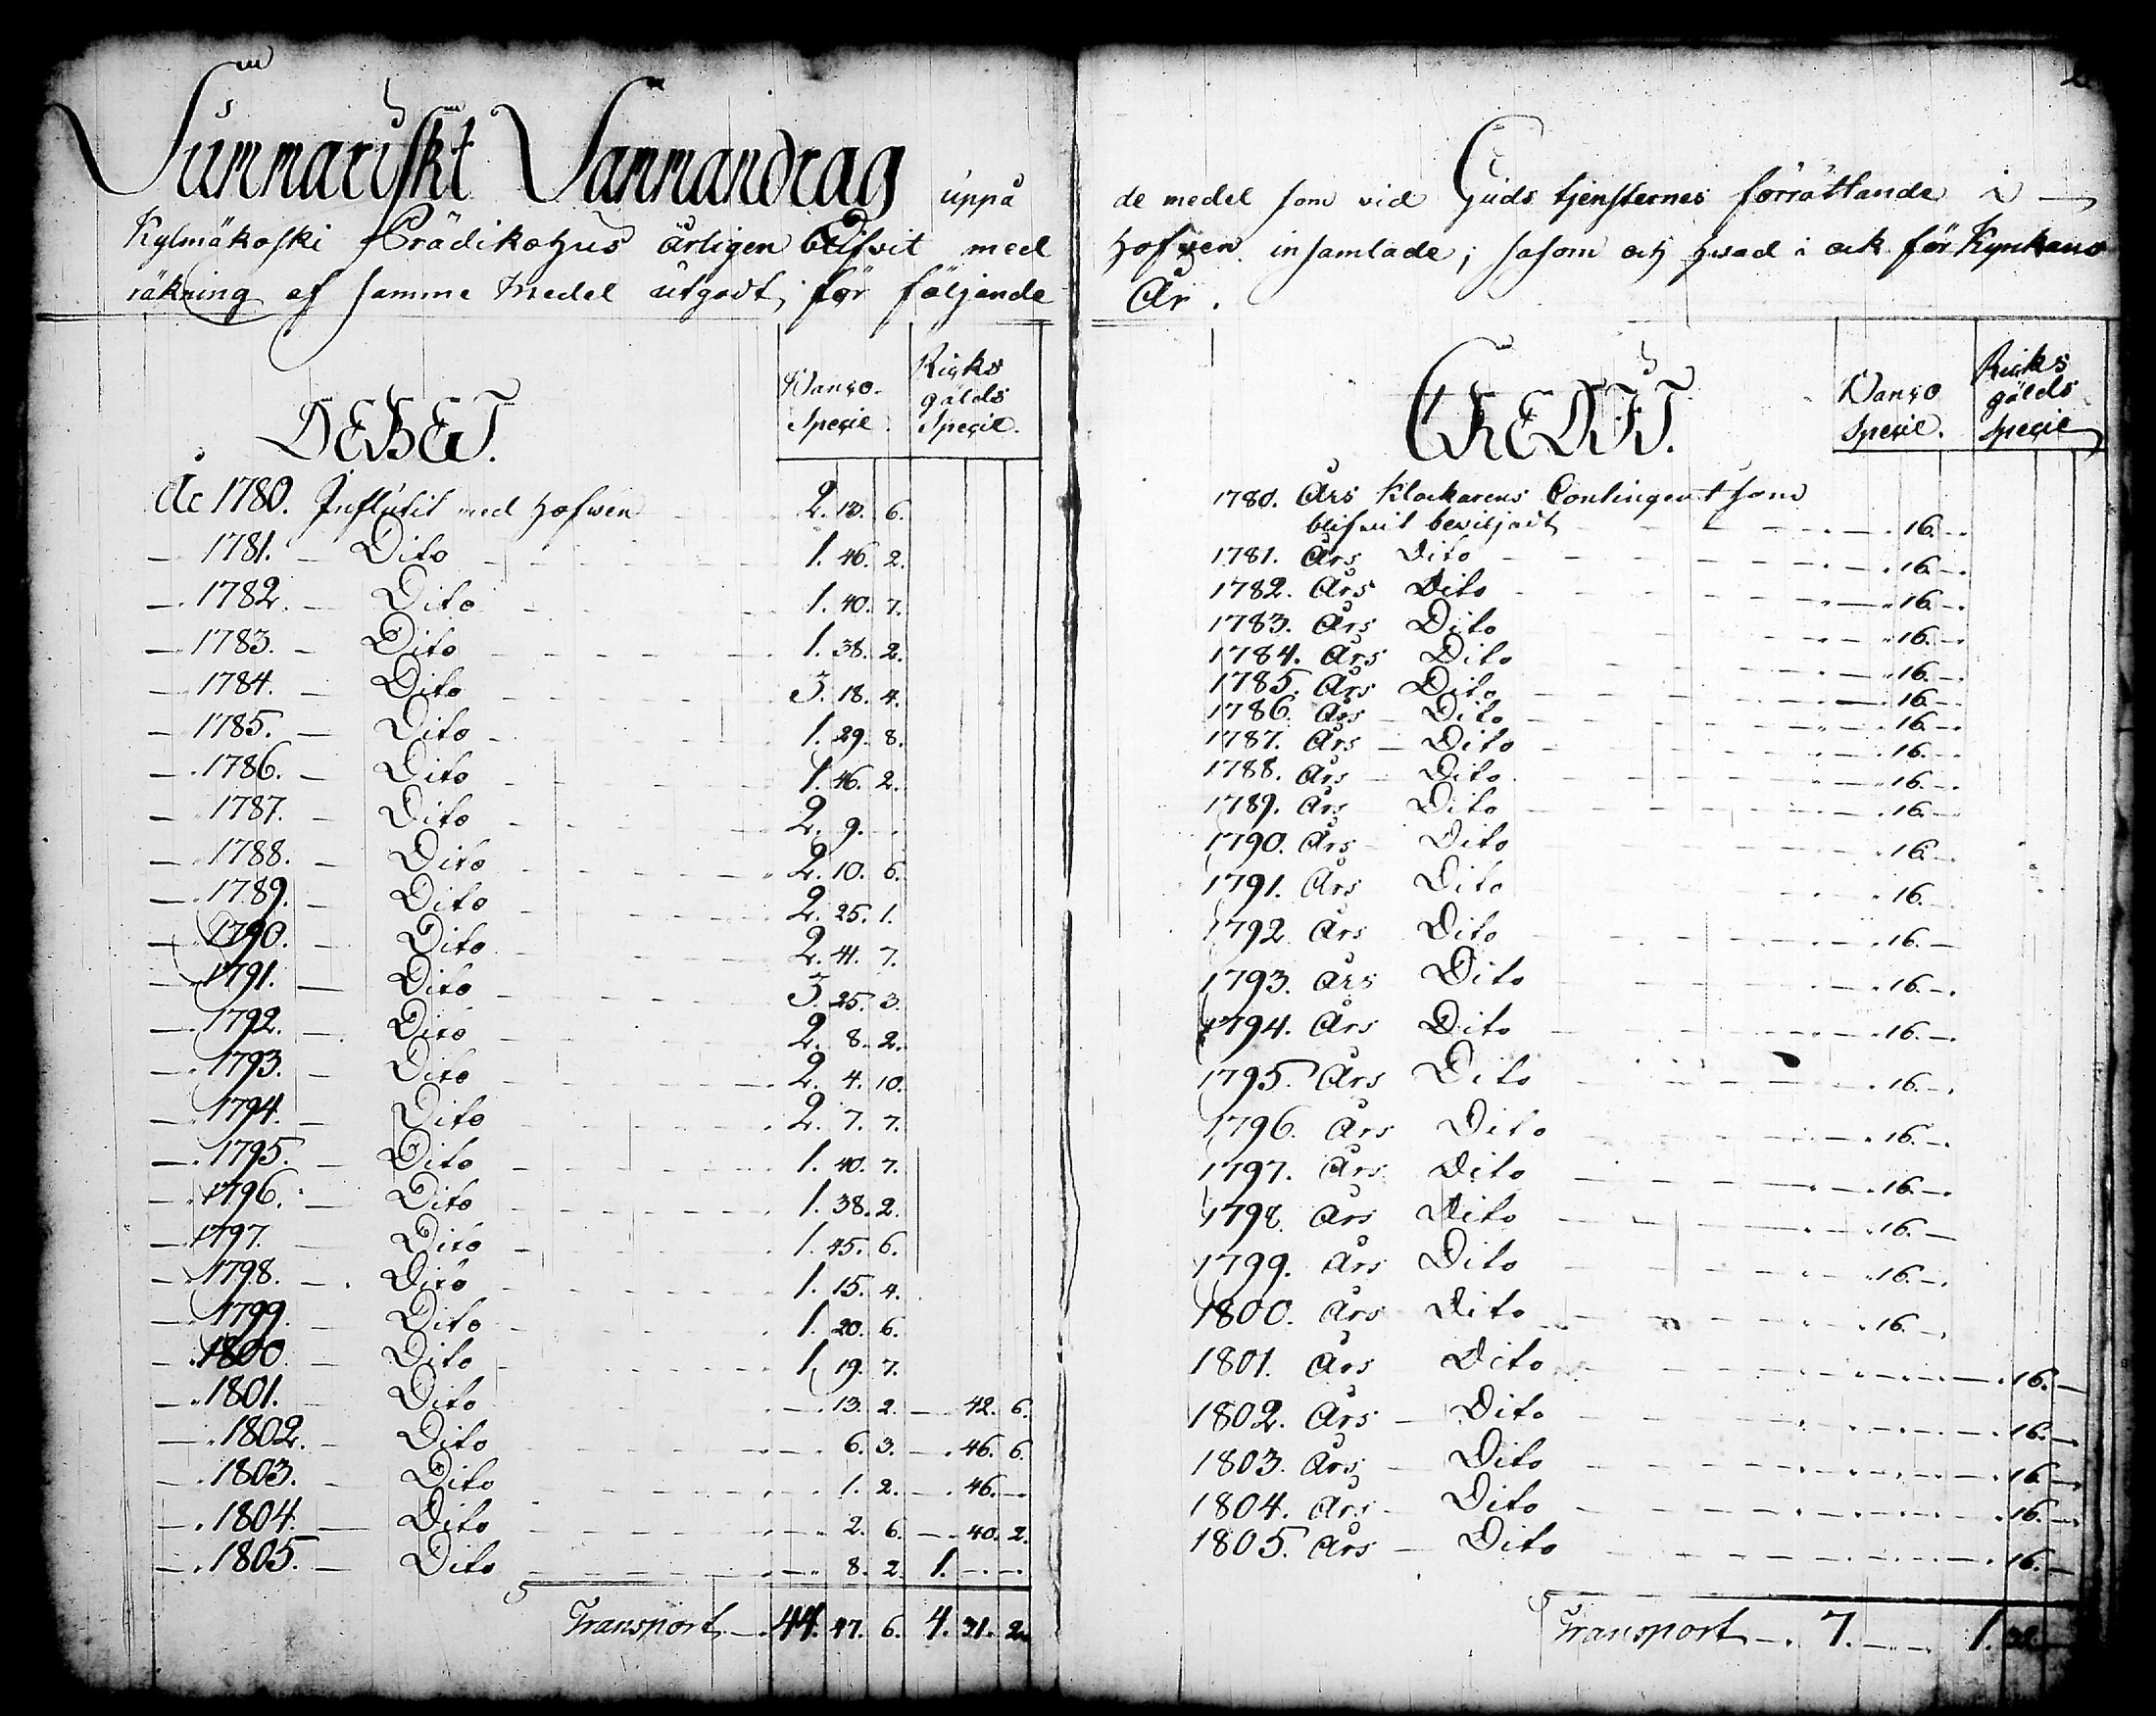 Summariskt Sammandrag uppå
Kylmäkoski Prädikohus årligen blifvit med
räkning af samme medel utgådt, för följande
DEBET.
Banco Specie.
Riksgälds Specie.
År 1780. Influtit med Hofwen 2. 10. 6.
— 1781. — Dito 1. 46. 2.
— 1782. — Dito 1. 40. 7.
— 1783. — Dito 1. 38. 2.
— 1784. — Dito 3. 18. 4.
— 1785. — Dito 1. 29. 8.
— 1786. — Dito 1. 46. 2.
— 1787. — Dito 2. 9. —
— 1788. — Dito 2. 10. 6.
— 1789. — Dito 2. 25. 1.
— 1790. — Dito 2. 41. 7.
— 1791. — Dito 3. 25. 3.
— 1792. — Dito 2. 8. 2.
— 1793. — Dito 2. 4. 10.
— 1794. — Dito 2. 7. 7.
— 1795. — Dito 1. 40. 7.
— 1796. — Dito 1. 38. 2.
— 1797. — Dito 1. 45. 6.
— 1798. — Dito 1. 15. 4.
— 1799. — Dito 1. 20. 6.
— 1800. — Dito 1. 19. 7.
— 1801. — Dito — 13. 2. — 42. 6.
— 1802. — Dito — 6. 3. — 46. 6.
— 1803. — Dito — 1. 2. — 46. —
— 1804. — Dito — 2. 6. — 40. 2.
— 1805. — Dito — 8. 2. 1. — —
Transport — 44. 47. 6. 4. 31. 2.
de medel som vid Guds tjensternes förrättande i
Hofwen insamlade; såsom och hwad i
År.
CREDIT.
Banco Specie.
Riksgälds Specie
1780. Års Klockarens Contingent som
blifwit beviljadt — 16. —
1781. Års Dito — 16. —
1782. Års Dito — 16. —
1783. Års Dito — 16. —
1784. Års Dito — 16. —
1785. Års Dito — 16. —
1786. Års — Dito — 16. —
1787. Års — Dito — 16. —
1788. Års — Dito — 16. —
1789. Års Dito — 16. —
1790. Års Dito — 16. —
1791. Års Dito — 16. —
1792. Års Dito — 16. —
1793. Års Dito — 16. —
1794. Års Dito — 16. —
1795. Års Dito — 16. —
1796. Års Dito — 16. —
1797. Års Dito — 16. —
1798. Års Dito — 16. —
1799. Års Dito — 16. —
1800. Års Dito — 16. —
1801. Års Dito — 16. —
1802. Års — Dito — 16. —
1803. Års — Dito — 16. —
1804. Års — Dito — 16. —
1805. Års — Dito — 16. —
Transport — 7. — — 1. 32. —